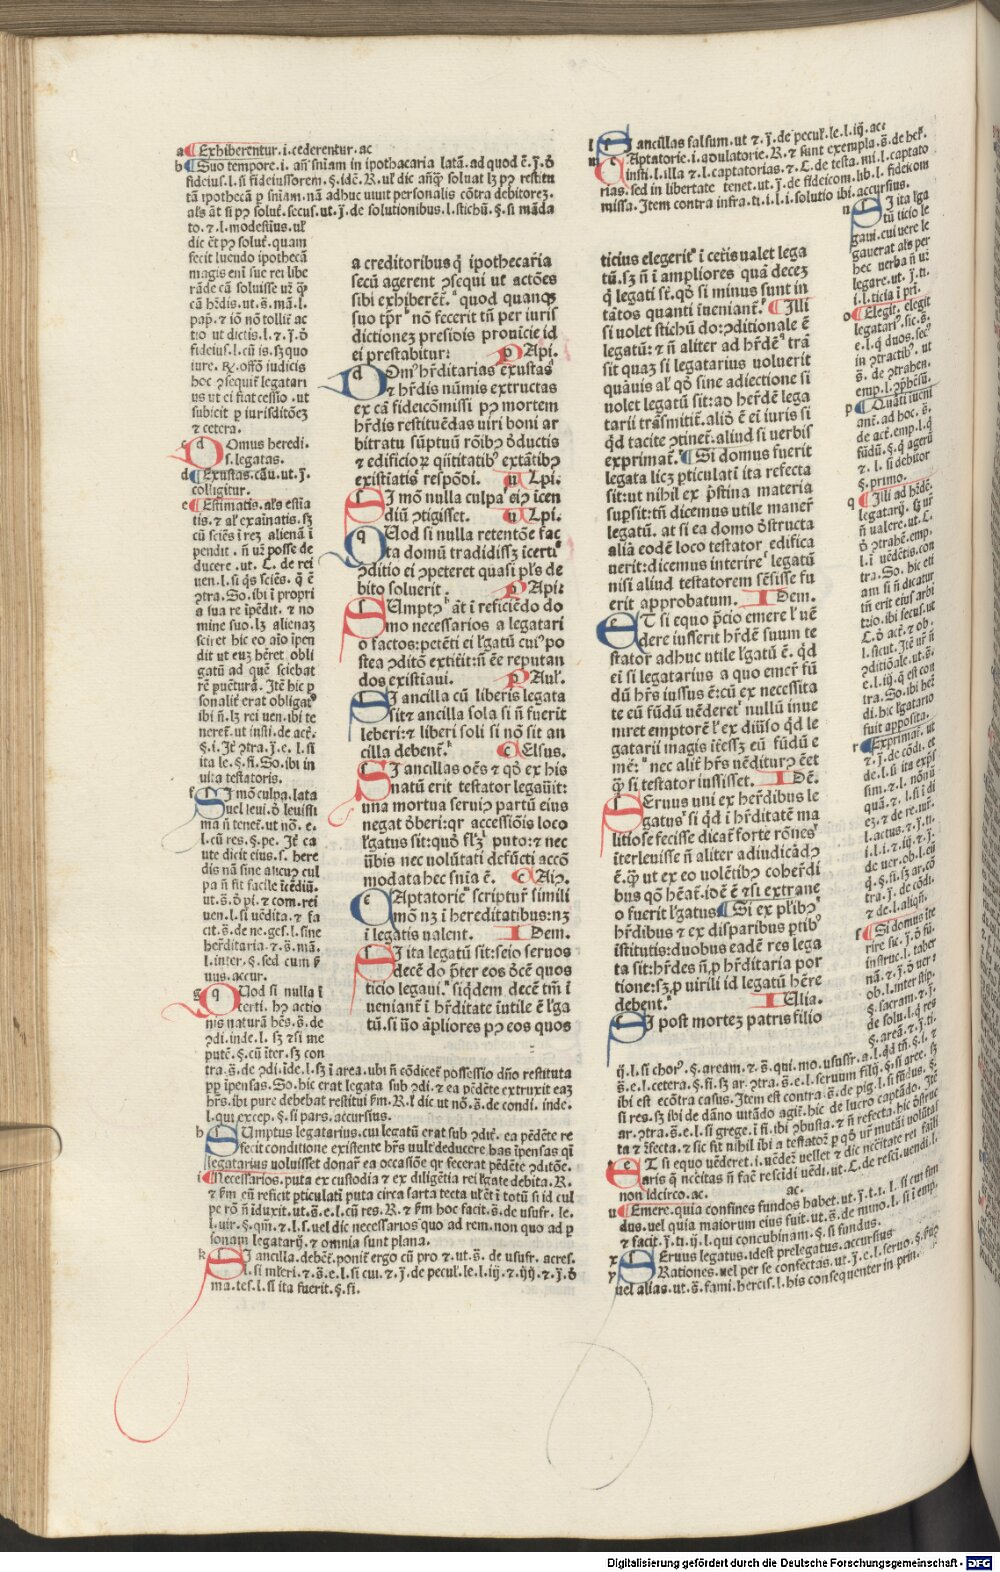 a Exhiberentur.i.cederentur.ac
b Suo tempore.i.añ sñiam in ipothacaria latā.ad quod ē.j.ō
fideius.l.si fideiussorem.§.idē.R.ul' dic añqȝ soluat lȝ pꝰ restitu
tā ipothecā p sñiam.nā adhuc uiuit personalis cōtra debitoreȝ.
al's āt si pꝰ solut̄.secus.ut.j.de solutionibus.l.stichū.§.si māda
to.⁊.l.modestius.ul'
dic ēt pꝰ solut̄.quam
fecit luendo ipothecā
magis eni sue rei libe
rādecā soluisse
cā hr̄dis.ut.s̄.mā.l.
pap̄.⁊ iō nō tollit̄ ac
tio ut dictis.l.⁊.j.ō
fideius.l.cū is.sȝ quo
iure. offō iudicis
hoc ɔsequit̄ legatari
us ut ei fiat cessio.ut
subicit p iurisditōeȝ
⁊ cetera.
c Domus heredi.
s.legatas.
d Exustas.cāu.ut.j.
colligitur.
e Estimatis.al's estia
tis.⁊ al' exainatis.sȝ
cū sciēs i reȝ alienā i
pendit.ñ ur̄ posse de
ducere.ut.C.de rei
uen.l.si qs sciēs.q ē
ɔtra.So.ibi i propri
a sua re ip̄edit.⁊ no
mine suo.lȝ alienaȝ
sciret hic eo aio ip̄en
dit ut euȝ hēret obli
gatū ad quē sciebat
rē puētura.Itē hic p
sonalit̄ erat obligatꝰ
ibi ñ.lȝ rei uen.ibi te
neret̄.ut insti.de act̄.
§.i.Itē ɔtra.j.e.l.si
ita le.§.fi.So.ibi in
uita testatoris.
f Si mō culpa.lata
uel leui.ō leuissi
ma ñ tenet̄.ut nō.e.
l.cū res.§.pe.It̄ ca
ute dicit eius.s.here
dis nā sine alicuȝ cul
pa ñ fit facile īcēdiū.
ut.s̄.ō pi.⁊ com.rei
uen.l.si uēdita.⁊ fa
cit.s̄.de ne.ges.l.sine
her̄ditaria.⁊.s̄.mā.
l.inter.§.sed cum
uus.accur.
g Quod si nulla i
certi.hꝰ actio
nis naturā hēs.s̄.de
ɔdi.inde.l.sȝ ⁊ si me
putē.§.cū iter.sȝ con
tra.s̄.de ɔdi.ide.l.sȝ i area.ubi ñ cōdicet̄ possessio dño restituta
pp ip̄ensas.So.hic erat legata sub ɔdi.⁊ ea pēdēte extruxit eaȝ
hr̄s.ibi pure debebat restitui p̄m.R.l' dic ut nō.s̄.de condi.inde.
l.qui excep.§.si pars.accursius.
h Sumptus legatarius.cui legatū erat sub ɔdit̄.ea pēdēte re
fecit conditione existente hr̄s uult deducere has ip̄ensas qi
legatarius uoluisset donar̄ ea occasiōe qr fecerat pēdēte ɔditōe.
i Necessarios.puta ex custodia ⁊ ex diligētia rei l'gate debita.R.
⁊ p̄m eū reficit pticulati puta circa sarta tecta ul' ēt i totū si id cul
pe rō ñ iduxit.ut.s̄.e.l.cū res.R.⁊ p̄m hoc facit.s̄.de usufr.le.
l.uir.§.qm̄.⁊.l.s.uel dic necessarios quo ad rem.non quo ad p
sonam legatarij.⁊ omnia sunt plana.
k Si ancilla.debēt.ponit̄ ergo cū pro ⁊.ut.s̄.de usufr.acres.
l.si mlieri.⁊.s̄.e.l.si cui.⁊.j.de pecul.le.l.iij.⁊.iiij.⁊.j.ō
ma.tes.l.si ita fuerit.§.si.
a creditoribus q̄ ipothecaria
secū agerent ɔsequi ut actōes
sibi exhiberēt.ᵃ quod quanqȝ
suo tp̄rᵇ nō fecerit tn̄ per iuris
dictioneȝ presidis prouicie id
ei prestabitur: Papi.
Domꝰ hr̄ditarias exustas
⁊ hr̄dis nūmis extructas
ex cā fideicōmissi pꝰ mortem
hr̄dis restituēdas uiri boni ar
bitratu sūptuū rōibꝰ ōductis
⁊ edificioꝝ qūtitatibꝰ extātibꝰ
existiatis respōdi. Ulpi.
Si mō nulla culpa eiꝰ icen
diū ɔtigisset. Ulpi.
Quod si nulla retentōe fac
ta domū tradidissȝ icerti
ɔditio ei ɔpeteret quasi pl's de
bito soluerit. Papi.
Sumptꝰ āt i reficiēdo do
mo necessarios a legatari
o factos:petēti ei l'gatū cuiꝰ po
stea ɔditō extitit:ñ ēe reputan
dos existiaui. Paul.
Si ancilla cū liberis legata
sit ⁊ ancilla sola si ñ fuerit
leberi:⁊ liberi soli si nō sit an
cilla debent̄.ᵏ Celsus.
Si ancillas oēs ⁊ qō ex his
natū erit testator legauit:
una mortua seruiꝰ partū eius
negat ōberi:qr accessiōis loco
l'gatus sit:quō flȝ puto:⁊ nec
ūbis nec uolūtati defūcti accō
modata hec snīa ē. Caiꝰ.
Captatorieᵐ scriptur̄ simili
mō nȝ i hereditatibus:nȝ
i legatis ualent. Idem.
Si ita legatū sit:seio seruos
decē do p̄ter eos ōcē quos
ticio legaui.ⁿ siqdem decē tm̄ i
ueniant̄ i hr̄ditate intile ē l'ga
tū.si ūo āpliores pꝰ eos quos
l Si ancillas falsum.ut ⁊.j.de pecul.le.l.iij.ac:
m Captatorie.i.adulatorie.R.⁊ sunt exempla.s̄.de her̄.
insti.l.illa ⁊.l.captatorias.⁊.C.de testa.mi.l.captato
rias.sed in libertate tenet.ut.j.de fideicom.lib.l.fideicom
missa.Item contra infra.ti.i.l.i.solutio ibi.accursius.
ticius elegeritᵒ i ceteris ualet lega
tū.sȝ ñ i ampliores quā deceȝ
q̄ legati st̄.qō si minus sunt in
tātos quanti iueniant̄.ᵖ Illi
si uolet stichū do:ɔditionale ē
legatū:⁊ ñ aliter ad hr̄dē trā
sit quaȝ si legatarius uoluerit
quāuis al' qō sine adiectione si
uolet legatū sit:ad herdē lega
tarij trāsmittit̄.aliō ē ei iuris si
qd tacite ɔtinet̄.aliud si uerbis
exprimat̄. Si domus fuerit
legata licȝ pticulati ita refecta
sit:ut nihil ex p̄stina materia
sup̄sit:tn̄ dicemus utile maner̄
legatū. at si ea domo ōstructa
aliā codē loco testator edifica
uerit:dicemus interire legatū
nisi aliud testatorem sēsisse fu
erit approbatum. Idem.
Et si equo p̄cio emere l' uē
dere iusserit hr̄dē suum te
stator adhuc utile l'gatū ē. qd
ei si legatarius a quo emer̄ fū
dū hr̄s iussus ē:cū ex necessita
te eū fūdū uēderet nullū inue
niret emptorē l' ex diūso qd le
gatarij magis itēssȝ eū fūdū e
mē: nec alit̄ hr̄s uēditurꝰ ēet
qȝ si testator iussisset. Idē.
Seruus uni ex her̄dibus le
gatus si qd i hr̄ditatē ma
litiose fecisse dicat̄ forte rōnes
iterleuisse ñ aliter adiudicādꝰ
ē.qȝ ut ex eo uolētibꝰ coher̄di
bus qō hēat̄.idē ē ⁊ si extrane
o fuerit l'gatus Si ex pl'ibꝰ
hr̄dibus ⁊ ex disparibus ptibꝰ
istitutis:duobus eadē res lega
ta sit:hr̄des ñ p hr̄ditaria por
tione:sȝ p uirili id legatū hēre
debent. Iulia.
Si post morteȝ patris filio
n Si ita l'ga
tū ticio le
gaui.cui uere le
gauerat al's per
hec uerba ñ ur̄
legare.ut.j.ti.
i.l.ticia i pri.
o Elegit.elegit
legatariꝰ.sic.s̄.
e.l.q̄ duos.secꝰ
in ɔtractibꝰ.ut
s̄.de ɔtrahen.
emp.l.
p Quāti iueni
ant̄.ad hoc.s̄.
de act̄.emp.l.q̄
fūdū.§.q̄ agerū
⁊.l.si debitor
§.primo.
q Illi ad hr̄dē.
legatarij.sȝ ur̄
ñ ualere.ut.C.
ō ɔtrahē.emp.
l.i uēdētis.con
tra.So.hic eti
am si ñ dicatur
tn̄ erit eius arbi
trio.ibi secus.ut
C.ō act̄.⁊ ob.
l.sicut.Itē ur̄ ñ
ɔditiōale.ut.s̄.
e.l.iij.q̄ est con
tra.So.ibi her̄
di.hic l'gatario
fuit apposita.
r Exprimat̄.ut
⁊.j.de cōdi.et
de.l.si ita exp̄s
sim.⁊.l.nō nū
quā.⁊.l.si i di
eȝ.⁊ de re.iur̄.
l.actus.⁊.j.ti.
i.l.i.⁊.iij.⁊.j.
de uer.ob.l.eū
q̄.§.fi.sȝ ar.cō
tra.j.de cōdi.
⁊ de.l.aliqñ.
f Si domus ite
rire sic.j.ō fū.
instruc.l.taber
nā.⁊.j.ō uer:
ob.l.inter stip.
§.sacram.⁊.j.
de solu.l.q̄ res
§.areā.⁊.j.ti.
ij.l.si chorꝰ.§.aream.⁊.s̄.qui.mo.ususfr.a.l.qd tn̄.§.i.⁊
s̄.e.l.cetera.§.fi.sȝ ar ɔtra.s̄.e.l.seruum filij.§.si aree.sȝ
ibi est ecōtra casus.Item est contra.s̄.de pig.l.si fūdus.§.
si res.sȝ ibi de dāno uitādo agit̄.hic de lucro captādo.Itē
ar.ɔtra.s̄.e.l.si grege.i fi.ibi ɔbusta.⁊ ñ refecta.hic ōstruc
ta ⁊ r̄fecta.⁊ sic sit nihil ibi a testatore p qō ur̄ mutāi uolūtas
t Et si equo uēderet.i.uēdeē uellet ⁊ dic necitate rei famili
aris q̄ necitas ñ fac rescidi uēdi.ut.C.de resci.uendi.l.
non idcirco.ac. ac.
u Emere.quia confines fundos habet.ut.j.t.i.l.si cui fun
dus.uel quia maiorum eius fuit.ut.s̄.de mino.l.si i emp.
⁊ facit.j.ti.ij.l.qui concubinam.§.si fundus.
x Seruus legatus.idest prelegatus.accursius
y Rationes.uel per se confectas.ut.j.e.l.seruo.§.
uel alias.ut.s̄.fami.hercis.l.his consequenter in prin.
Digitalisierung gefördert durch die Deutsche Forschungsgemeinschaft - DFG